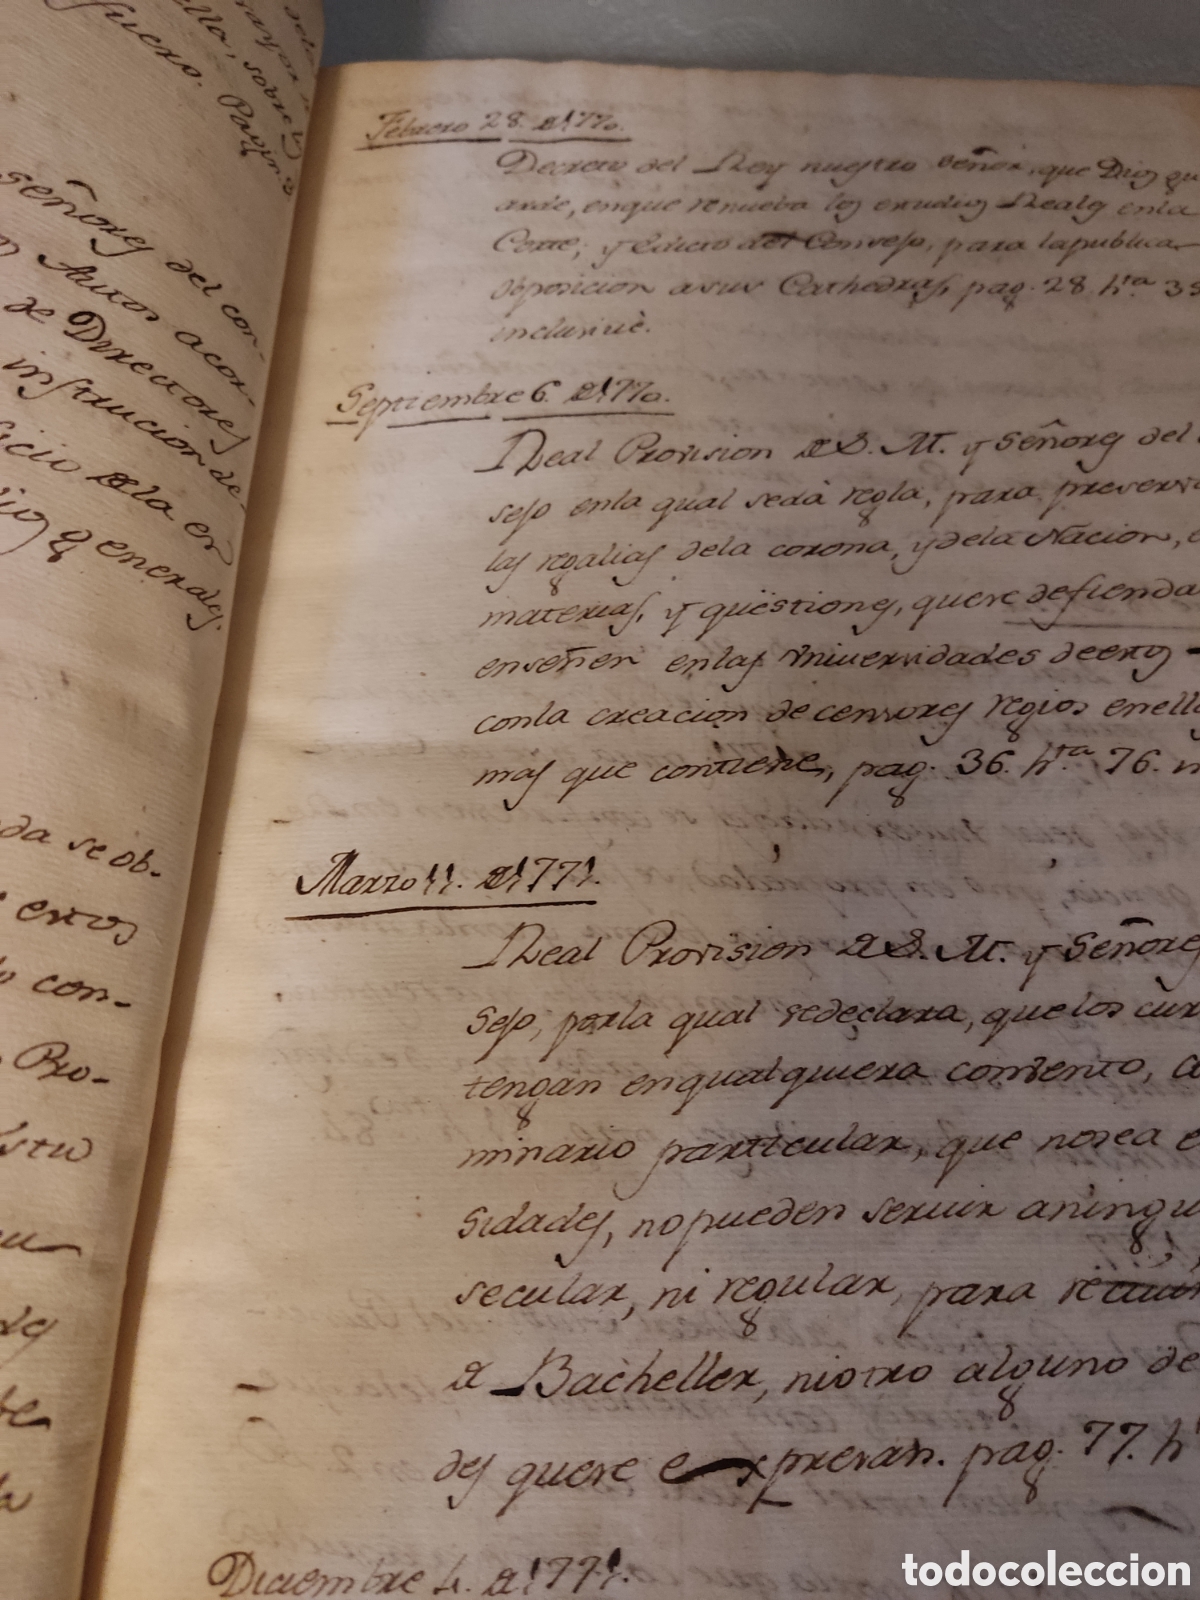 sobre la
fuero. Pagin.ᵃ
señores del con-
Autos acor-
de Directores
instruccion de-
ficio dela en
generales.
da se ob-
estos
con-
Pro-
Febrero 28. de 1770.
Decreto del Rey nuestro señor, que Dios gu
arde, enque renueba los estudios Reales enla
Corte; y Edicto del Consejo, para lapublica
oposicion asus Cathedras, pag. 28 hᵗᵃ 35
inclusivè.
Septiembre 6. de 1770.
Real Provision de S. M. y Señores del
sejo enla qual sedà regla, para preserva
las regalias dela corona, y dela Nacion, e
materias, y qüestiones, quese defienda
enseñen enlas Vniversidades deestos
conla creacion de censores regios enella
mas que contiene, pag. 36. hᵗᵃ 76. in
Marzo 11. de 1771.
Real Provision de S. M. y Señores
sejo, porla qual sedeclara, quelos cur
tengan enqualquiera convento, co
minario particular, que nosea e
sidades, nopueden servir aningu
secular, ni regular, para
de Bacheller, niotro alguno de
des quese expresan. pag. 77. h
Diciembre 4. de 1771.
todocoleccion